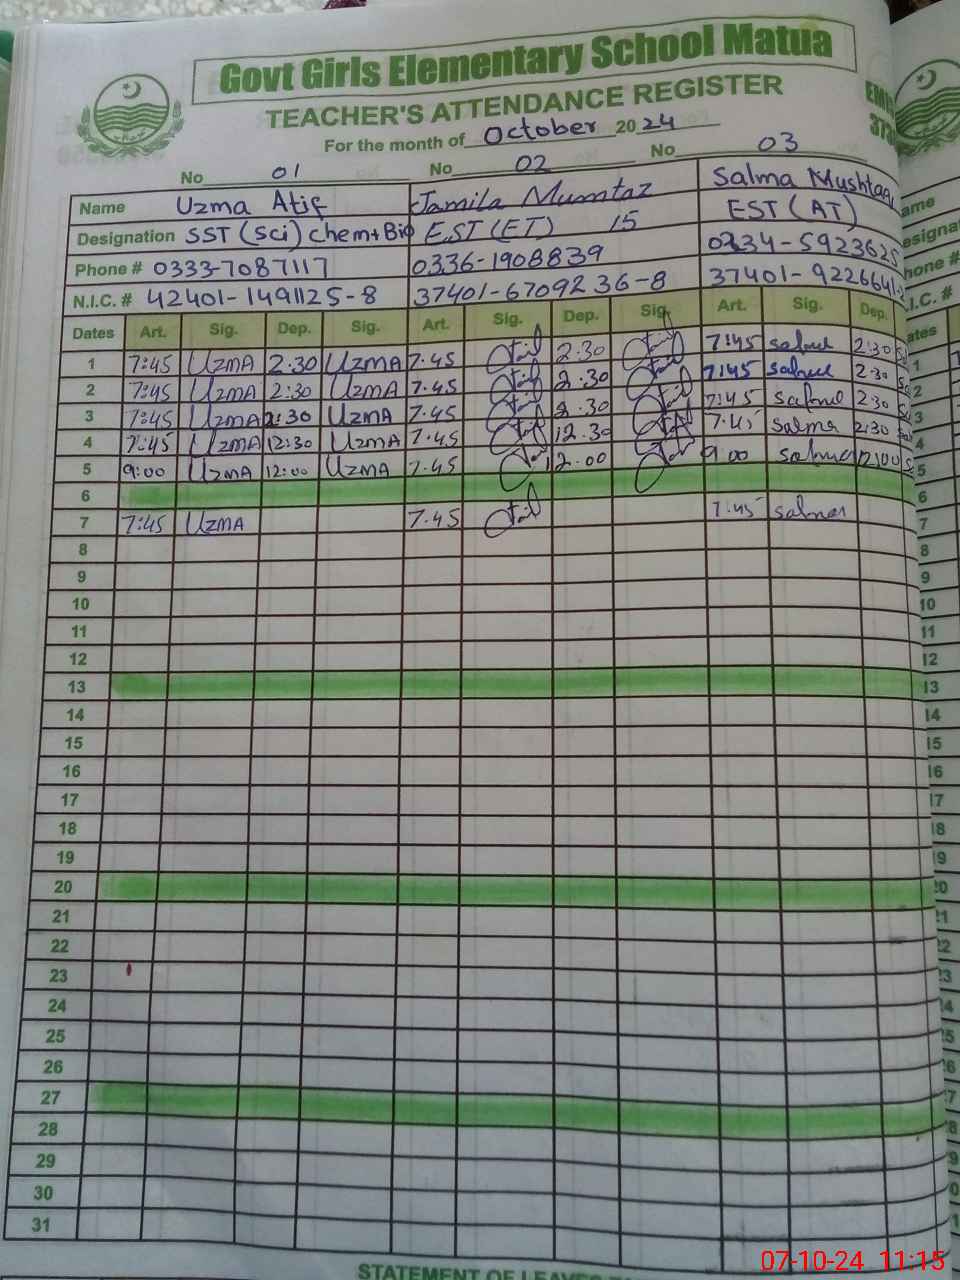 Govt Girls Elementary School Matua
TEACHER'S ATTENDANCE REGISTER
For the month of October 2024
No 01 No 02 No 03
Name Uzma Atif Jamila Mumtaz Salma Mushtaq
Designation SST (Sci) Chem+Bio EST (ET) 15 EST (AT)
Phone # 0333-7087117 0336-1908839 0334-5923625
N.I.C. # 42401-1491125-8 37401-6709236-8 37401-9226641-2
Dates Art. Sig. Dep. Sig. Art. Sig. Dep. Sig. Art. Sig. Dep.
1 7:45 UZMA 2.30 UZMA 7.45 2.30 7:45 salma 2:30
2 7:45 UZMA 2:30 UZMA 7.45 2.30 7:45 salma 2:30
3 7:45 UZMA 2:30 UZMA 7.45 2.30 7:45 salma 2:30
4 7:45 UZMA 12:30 UZMA 7.45 12.30 7:45 salma 12:30
5 9:00 UZMA 12:00 UZMA 7.45 12.00 9 00 salma 12:00
6
7 7:45 UZMA 7.45 7:45 salma
8
9
10
11
12
13
14
15
16
17
18
19
20
21
22
23
24
25
26
27
28
29
30
31
07-10-24 11:15